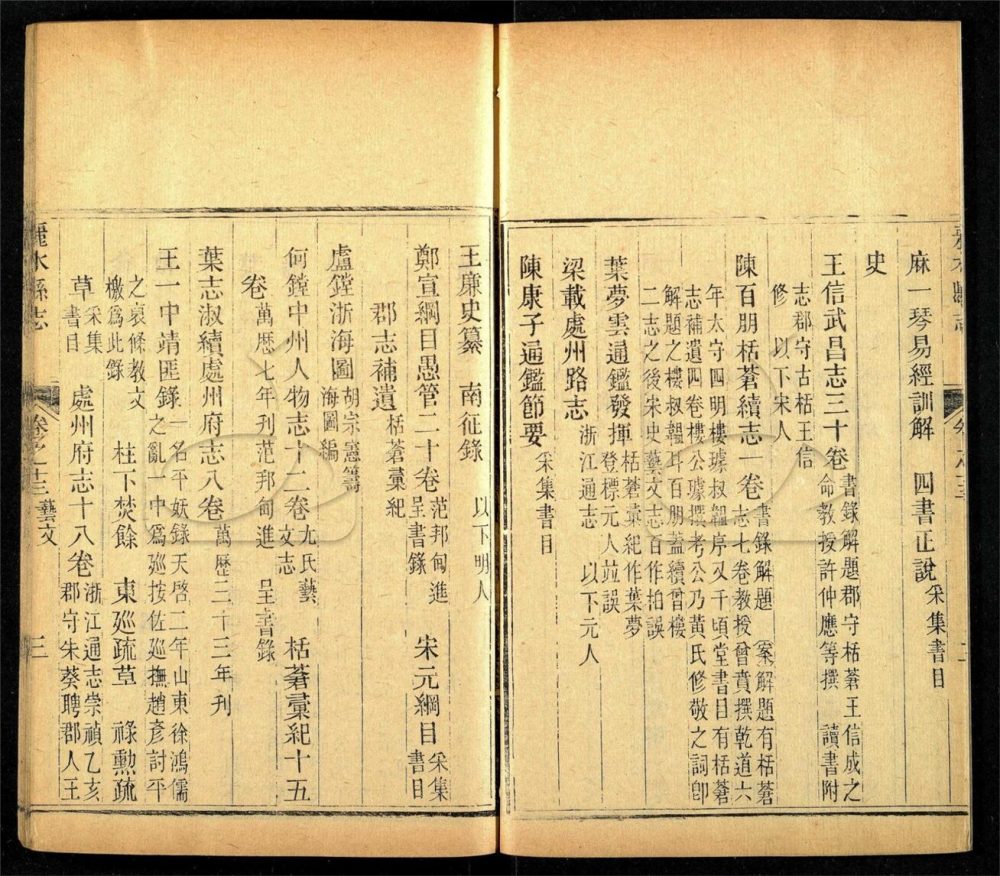 麻一琴易經訓解　四書正說采集書目
史
王信武昌志三十卷書錄解題郡守栝蒼王信成之
命教授許仲應等撰　讀書附
志郡守古栝王信
修　以下宋人
陳百朋栝蒼續志一卷書錄解題　案解題有栝蒼
志七卷教授曾賁撰乾道六
年太守四明樓璩叔韞序又千頃堂書目有栝蒼
志補遺四卷樓公璩撰考公乃黃氏修敬之詞卽
解題之樓叔韞耳百朋蓋續曾樓
二志之後宋史藝文志百作拍誤
葉夢雲通鑑發揮栝蒼彙紀作葉夢
登標元人竝誤
梁載處州路志浙江通志　以下元人
陳康子通鑑節要采集書目
麗水縣志
卷之十三藝文
三
王廉史纂　南征錄　以下明人
鄭宣綱目愚管二十卷范邦甸進
呈書錄　宋元綱目采集
書目
郡志補遺栝蒼彙紀
盧鏜浙海圖胡宗憲籌
海圖編
何鏜中州人物志十二卷尤氏藝
文志　栝蒼彙紀十五
卷萬厯七年刊范邦甸進　呈書錄
葉志淑續處州府志八卷萬曆三十三年刊
王一中靖匪錄一名平妖錄天啓二年山東徐鴻儒
之亂一中爲廵按佐廵撫趙彥討平
之裒條教文
檄爲此錄　柱下焚餘　東廵疏草　祿勳疏
草采集
書目　處州府志十八卷浙江通志崇禎乙亥
郡守朱葵聘郡人王